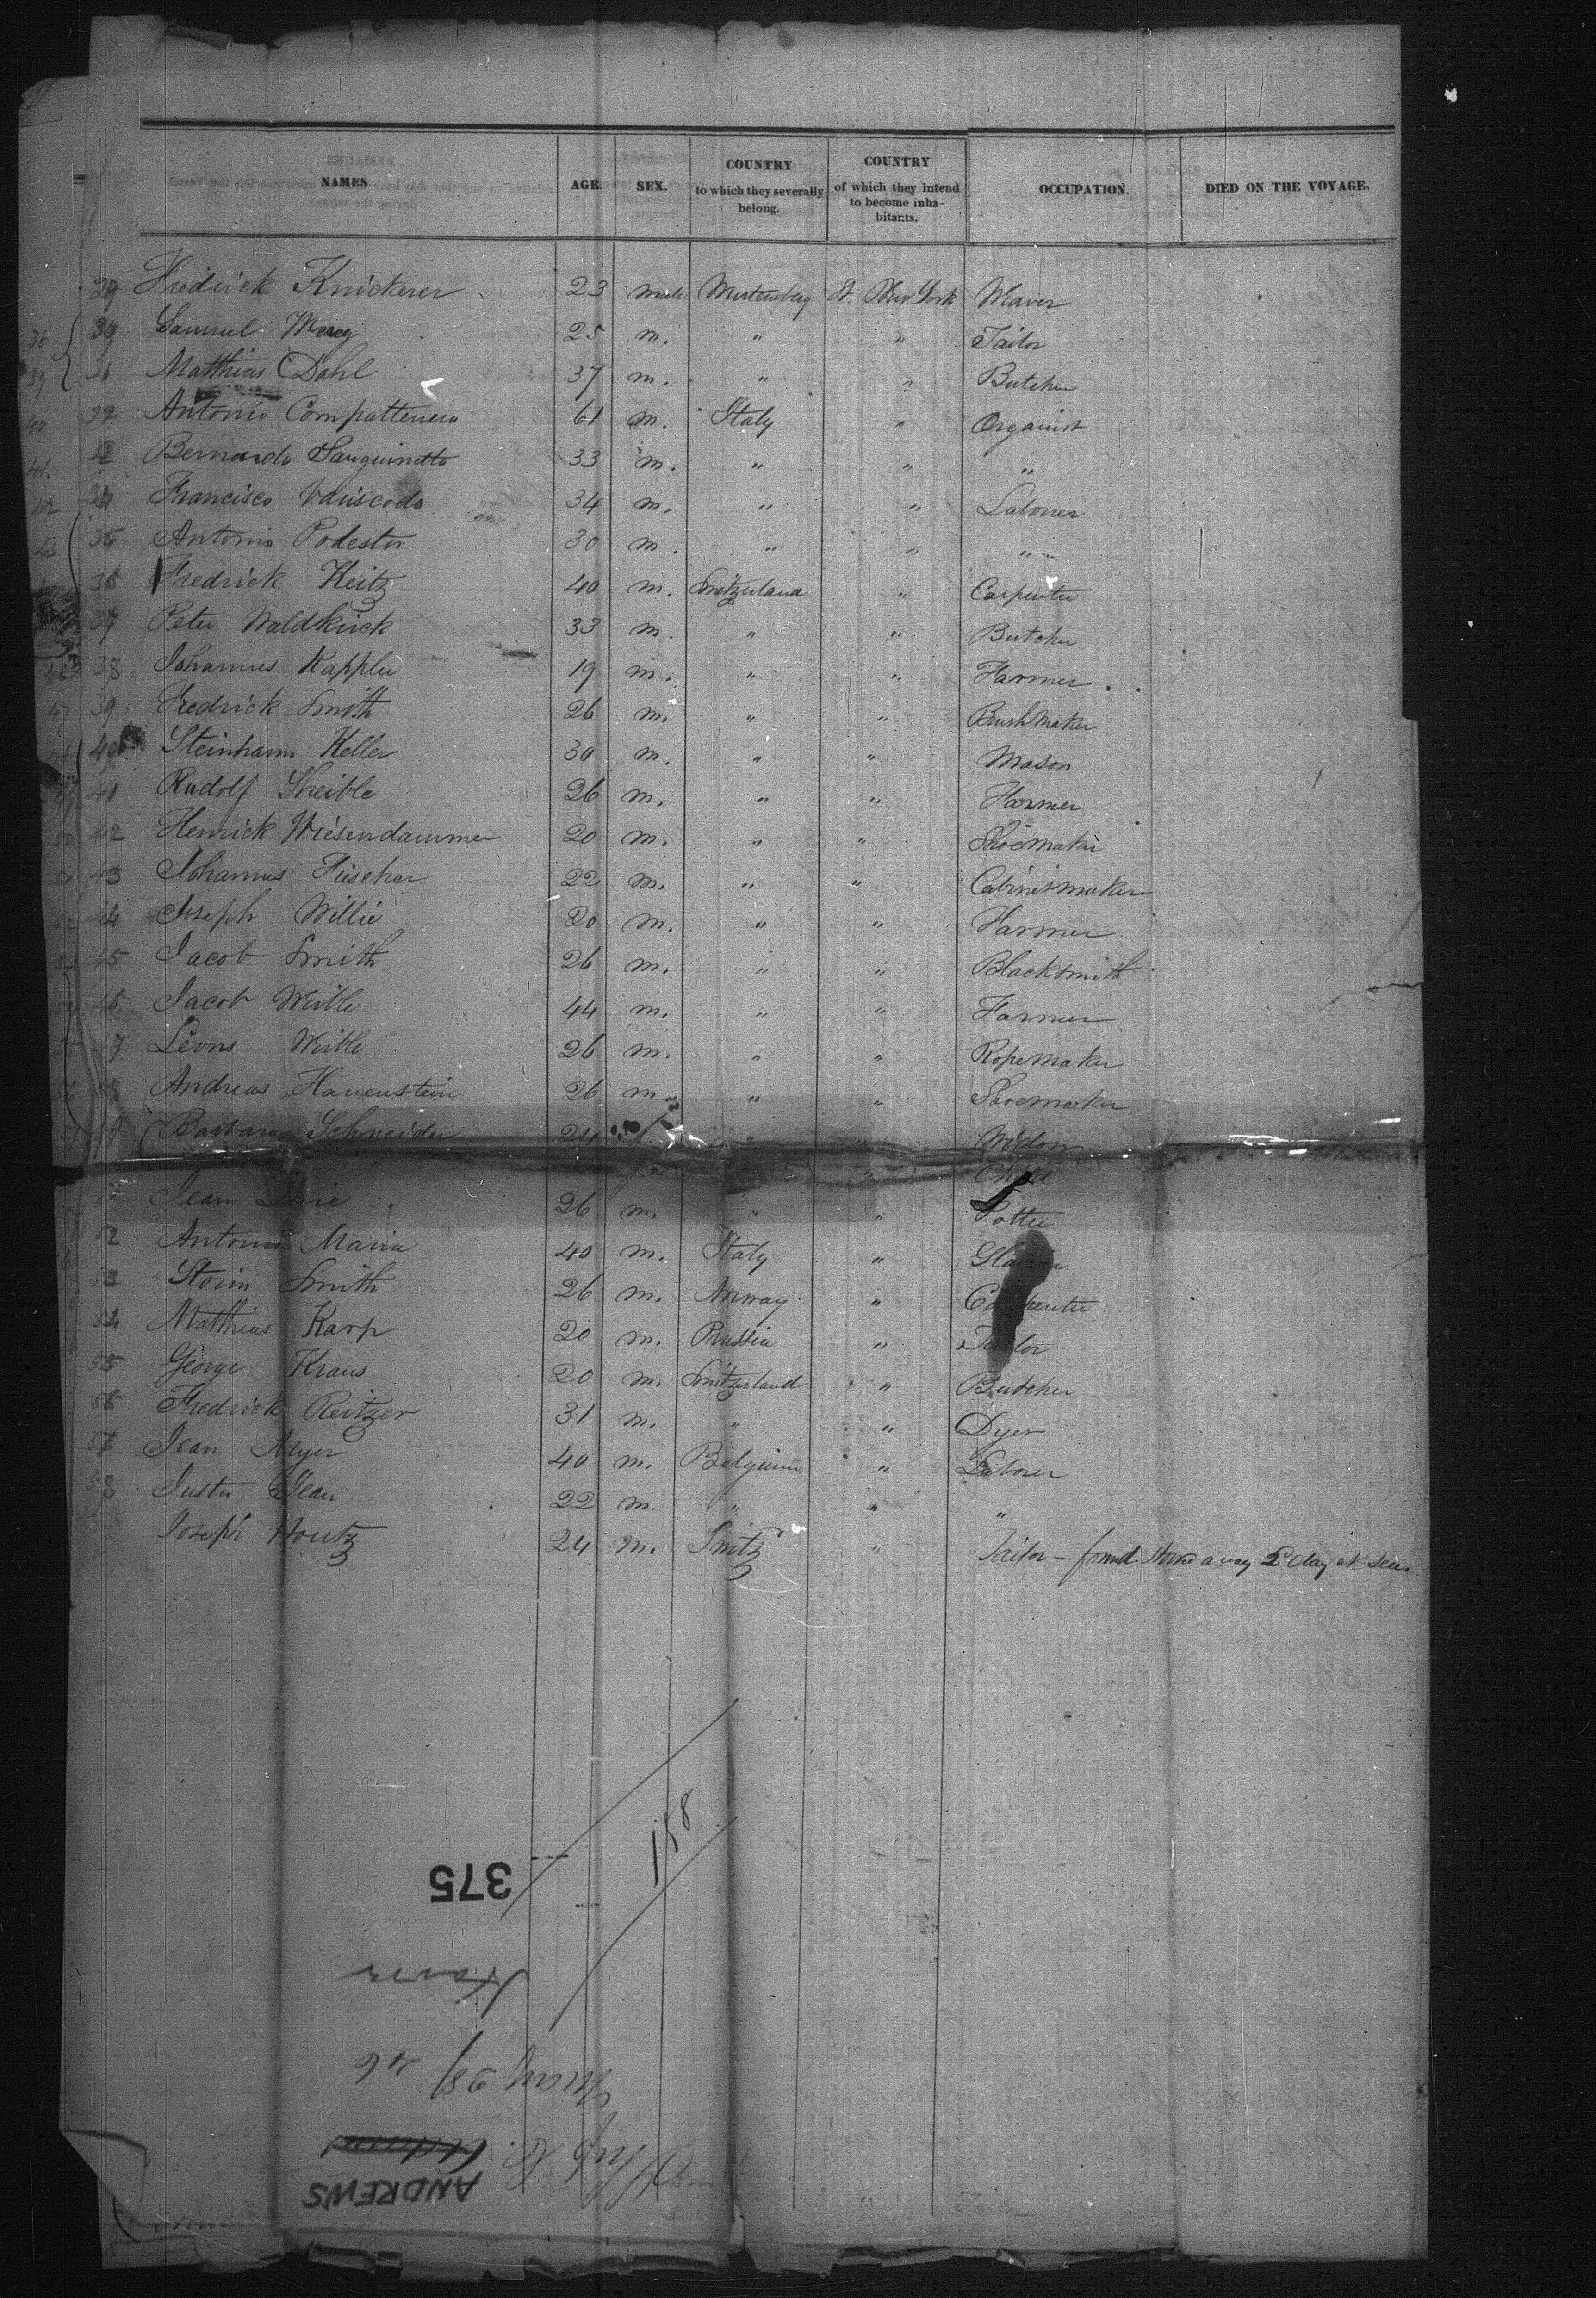 NAMES AGE. SEX. COUNTRY to which they severally belong. COUNTRY of which they intend to become inha-bitants. OCCUPATION. DIED ON THE VOYAGE.
29 Fredrick Knickerer 23 male Wurtemberg New York Weaver
30 Samuel 25 m. " " Tailor
31 Matthias Dahl 37 m. " " Butcher
32 Antonio Compattenero 61 m. Italy " Organist
Bernardo Sanguinetto 33 m. " " "
34 Francisco 34 m. " " Laborer
35 Antonio Podestor 30 m. " " "
36 Fredrick Keitz 40 m. Switzerland " Carpenter
37 Peter Waldkirck 33 m. " " Butcher
38 Johannes Kappler 19 m. " " Farmer
39 Fredrick Smith 26 m. " " Brushmaker
40 Steinhann Keller 30 m. " " Mason
41 Rudolf Sheible 26 m. " " Farmer
42 Henrick Wiesendammer 20 m. " " Shoemaker
43 Johannes Fuescher 22 m. " " Cabinetmaker
44 Joseph Willie 20 m. " " Farmer
45 Jacob Smith 26 m. " " Blacksmith
46 Jacob Weible 44 m. " " Farmer
47 Leons Weible 26 m. " " Ropemaker
48 Andreas Hauenstein 26 m. " " Shoemaker
49 Barbara Schneider 24 f. " " Widow
" " Child
Jean 26 m. " " Potter
52 Antonio Maria 40 m. Italy "
53 Storm Smith 26 m. Norway " Carpenter
54 Matthias Karp 20 m. Prussia " Tailor
55 George Kraus 20 m. Switzerland " Butcher
56 Fredrick Reitzer 31 m. " " Dyer
57 Jean Meyer 40 m. Belgium " Laborer
58 Juster Jean 22 m. " " "
Joseph Houtz 24 m. Switz " Tailor – found stowe away 2d day at sea
158
375
Havre
May 28/46
ANDREWS